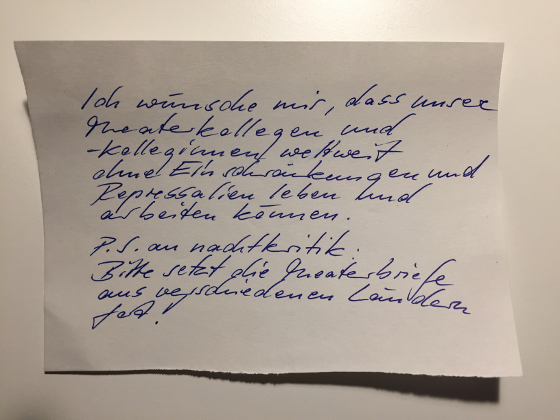 Ich wünsche mir, dass unsere
Theaterkollegen und
-kolleginnen weltweit
ohne Einschränkungen und
Repressalien leben und
arbeiten können.
P.S. an nachtkritik.
Bitte setzt die Theaterbriefe
aus verschiedenen Ländern
fort!